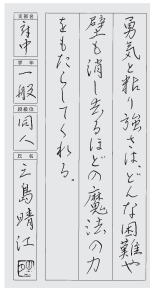 勇気と粘り強さは、どんな困難や
壁も消し去るほどの魔法の力
をもたらしてくれる。
支部名
府中
学年
一般
段級位
同人
氏名
三島晴江